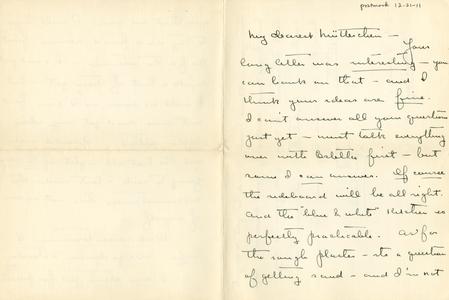 postmark 12-21-11
My dearest Mütterchen –
Your
long letter was interesting – you
can bank on that – and I
think your ideas are fine.
I can't answer all your questions
just yet – must talk everything
over with Estelle first – but
some I can answer. Of course
the sideboard will be all right.
And the "blue & white" kitchen is
perfectly practicable. As for
the rough plaster – it's a question
of getting sand – and I'm not